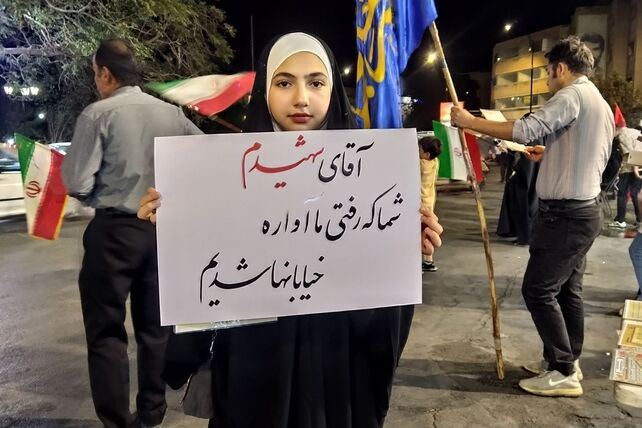 آقای شهیدم
شما که رفتی ما آواره
خیابانها شدیم